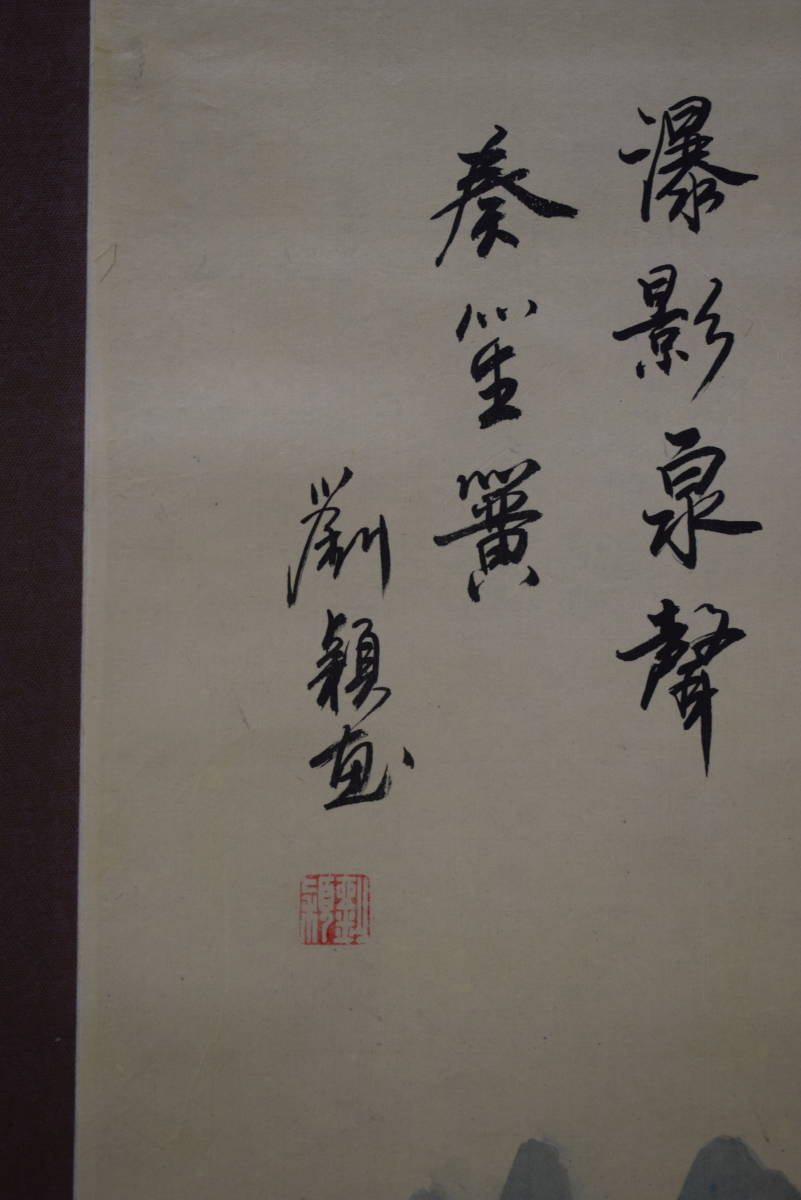 瀑影泉聲
奏笙簧
劉穎画
劉穎